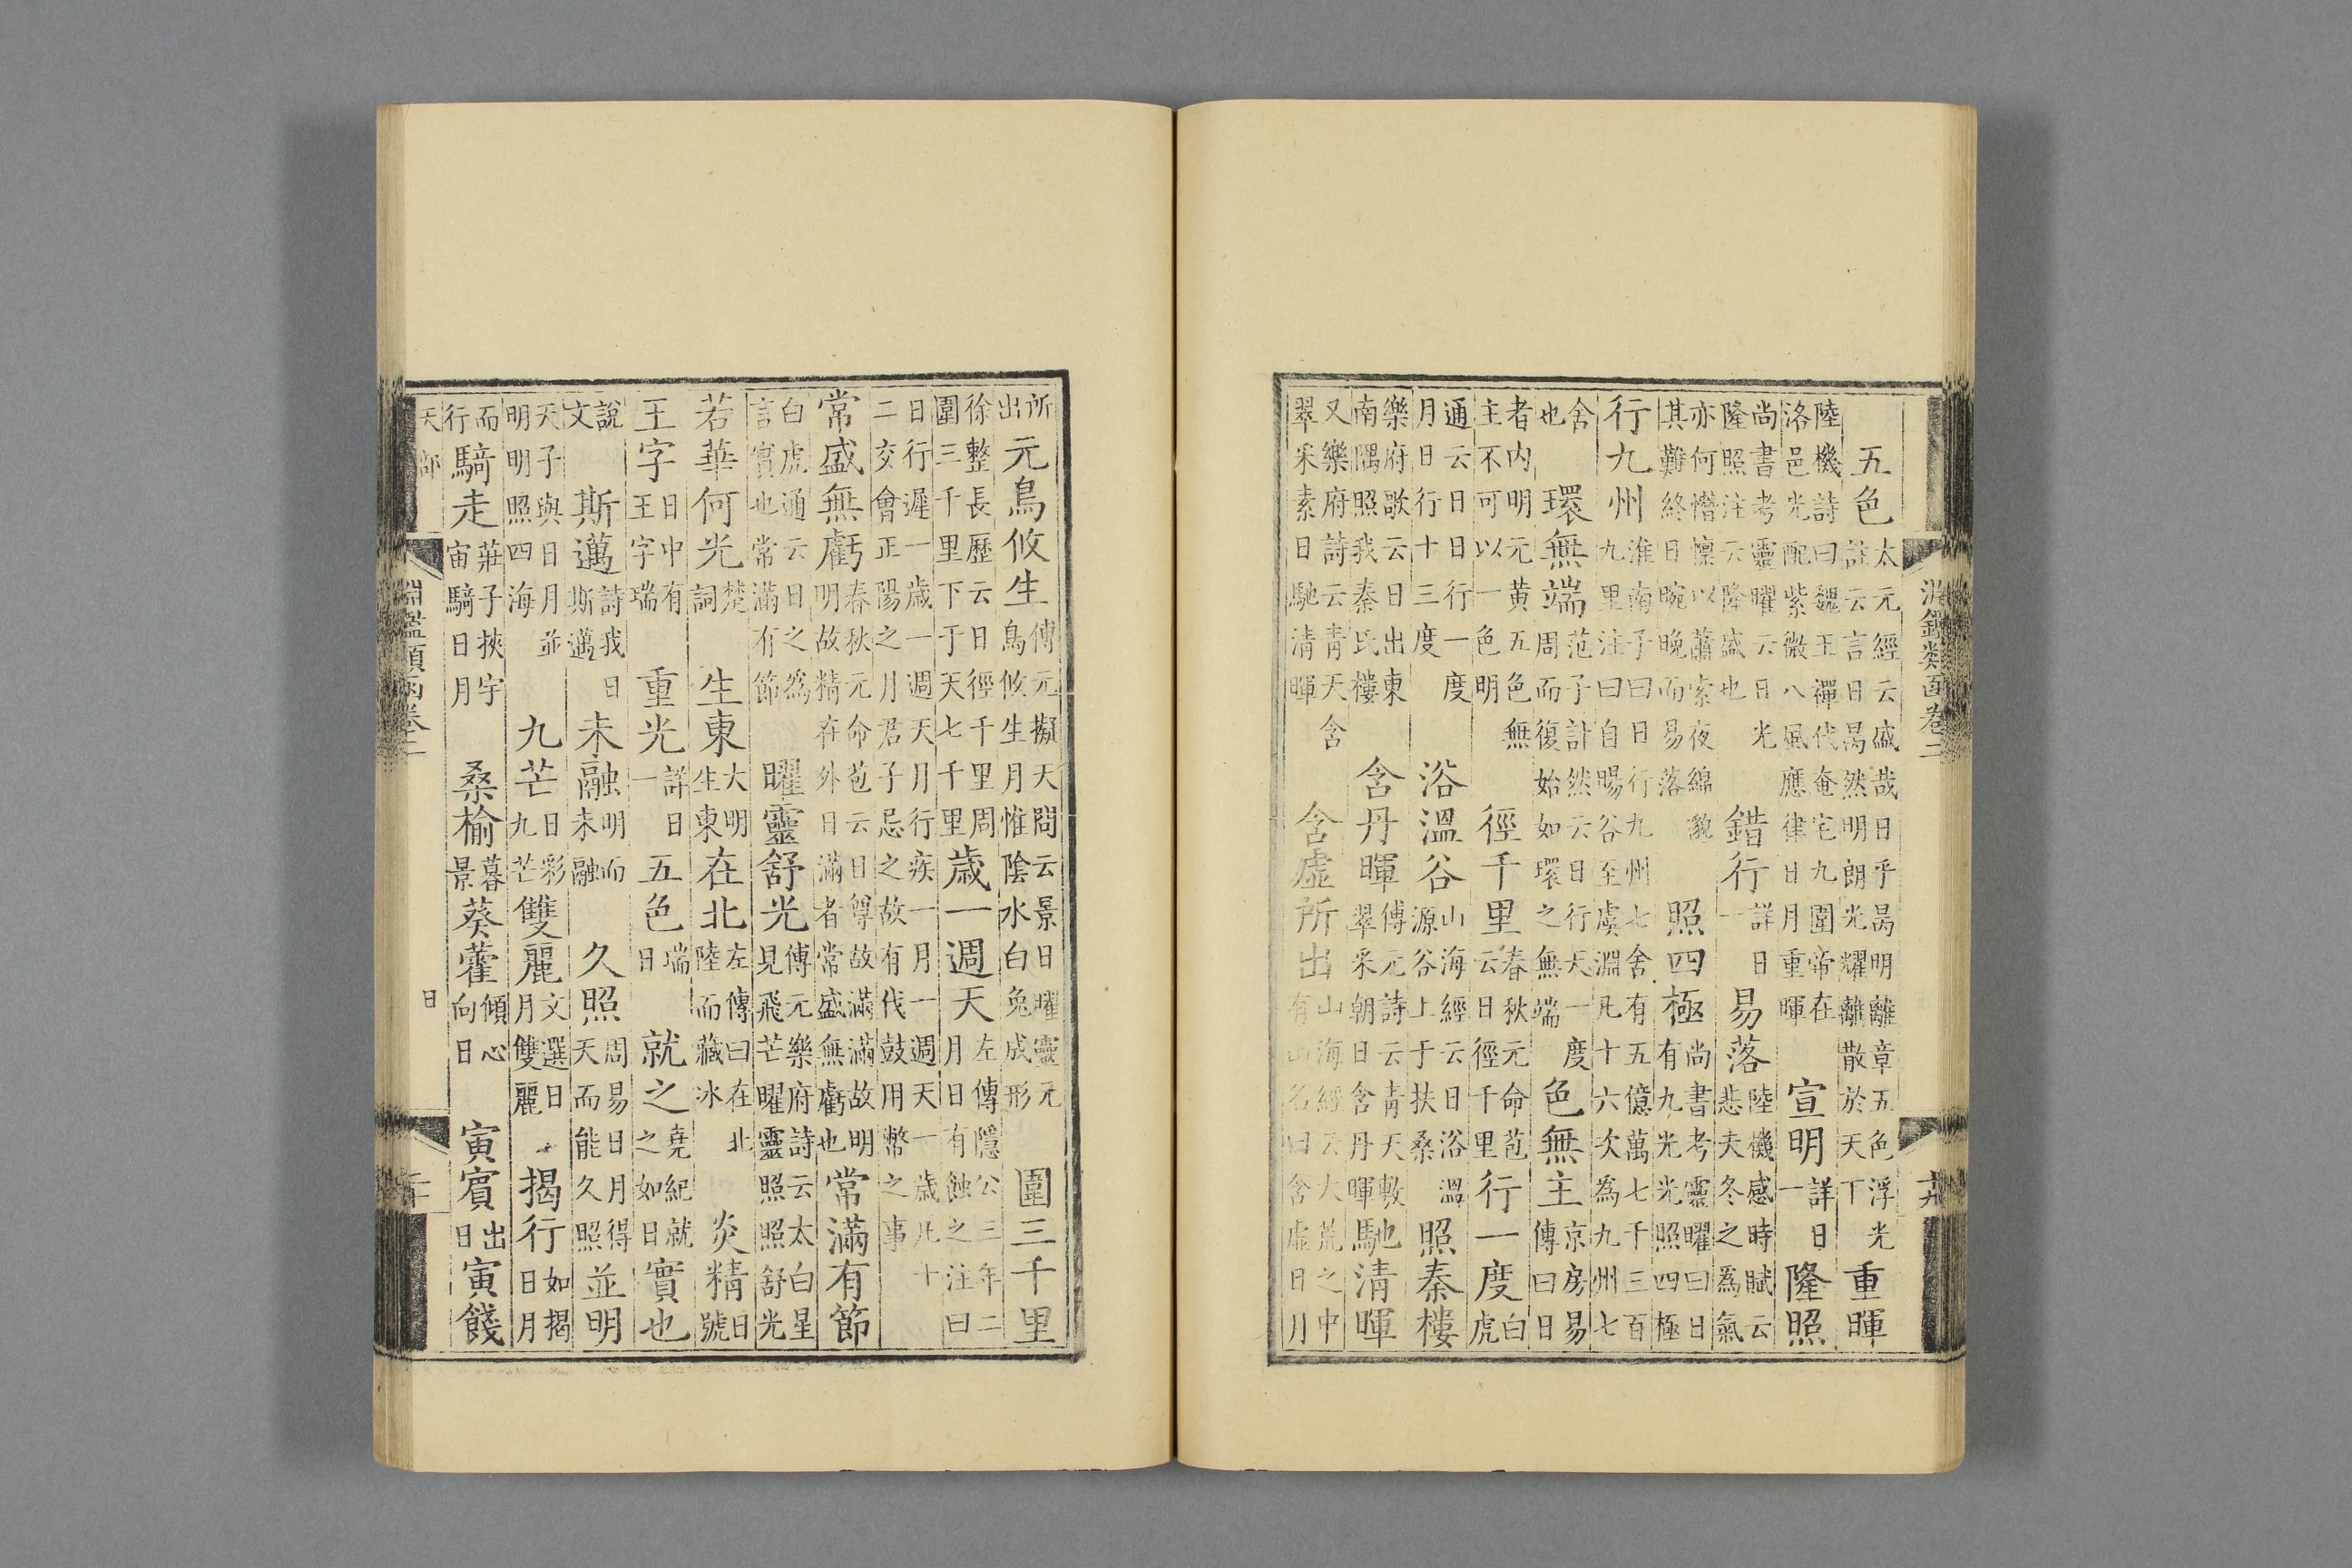 淵鑑類函卷二
十九
五色太元經云盛哉日乎昺明離章五色浮光註云言日昺然明朗光耀離離散於天下重暉
陸機詩曰魏王禪代奄宅九圍帝在洛邑光配紫微八風應律日月重暉宣明詳日一隆照
尚書考靈曜云日光隆照注云隆盛也錯行詳日一易落陸機感時賦云悲夫冬之為氣
亦何憯懍以蕭索夜綿邈其難終日晼晚而易落照四極尚書考靈曜曰日有九光光照四極
行九州淮南子曰日行九州七舍有五億萬七千三百九里注曰自暘谷至虞淵凡十六次為九州七
舍也環無端范子計然云日行天一度周而復始如環之無端色無主京房易傳曰日
者內明元黃五色無主不可以一色明徑千里春秋元命苞云日徑千里行一度白虎
通云日日行一度月日行十三度浴溫谷山海經云日浴溫源谷上于扶桑照秦樓
樂府歌云日出東南隅照我秦氏樓含丹暉傅元詩云青天敷翠采朝日含丹暉馳清暉
又樂府詩云青天含翠采素日馳清暉含虛所出山海經云大荒之中有山名曰含虛日月
所出元鳥攸生傅元擬天問云景日曜靈元鳥攸生月惟陰水白兔成形圍三千里
徐整長歷云日徑千里周圍三千里下于天七千里歲一週天左傳隱公三年二月日有蝕之注曰
日行遲一歲一週天月行疾一月一週天一歲凡十二交會正陽之月君子忌之故有伐鼓用幣之事
常盛無虧春秋元命苞云日尊故滿滿故明明故精在外日滿者常盛無虧也常滿有節
白虎通云日之為言實也常滿有節曜靈舒光傅元樂府詩云太白星見飛芒曜靈照照舒光
若華何光楚詞生東大明生東在北左傳曰在北陸而藏冰炎精日號
王字日中有王字瑞重光詳日一五色瑞日就之堯紀就之如日實也
說文斯邁詩我日斯邁未融明而未融久照周易日月得天而能久照並明
天子與日月並明明照四海九芒日彩九芒雙麗文選日月雙麗揭行如揭日月
而行騎走莊子挾宇宙騎日月桑榆暮景葵藿傾心向日寅賓出日寅餞
天部
日
淵鑑類函卷二